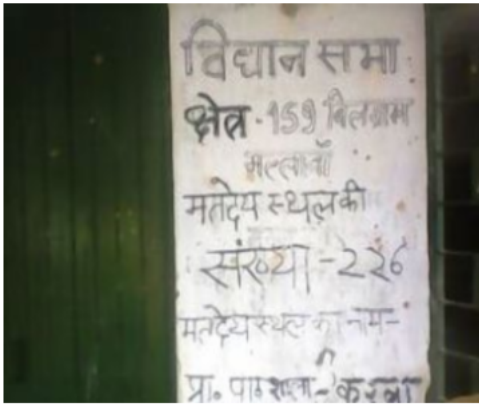 विधान सभा
क्षेत्र - 159 बिलग्राम
मल्लावाँ
मतदेय स्थल की
संख्या - 226
मतदेय स्थल का नाम -
प्रा. पाठशाला -